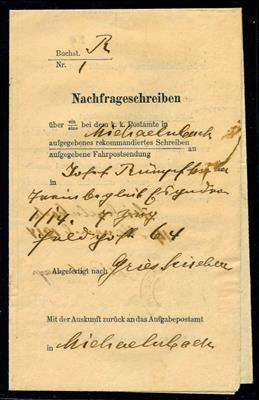 Buchst. R
Nr. 1
Nachfrageschreiben
über ein/eine bei dem k. k. Postamte in
Michaelnbach
aufgegebenes rekommandiertes Schreiben an
aufgegebene Fahrpostsendung
Josef
in
1/14. 4
Feldpost 64
Abgefertigt nach Grieskirchen
Mit der Auskunft zurück an das Aufgabepostamt
in Michaelnbach